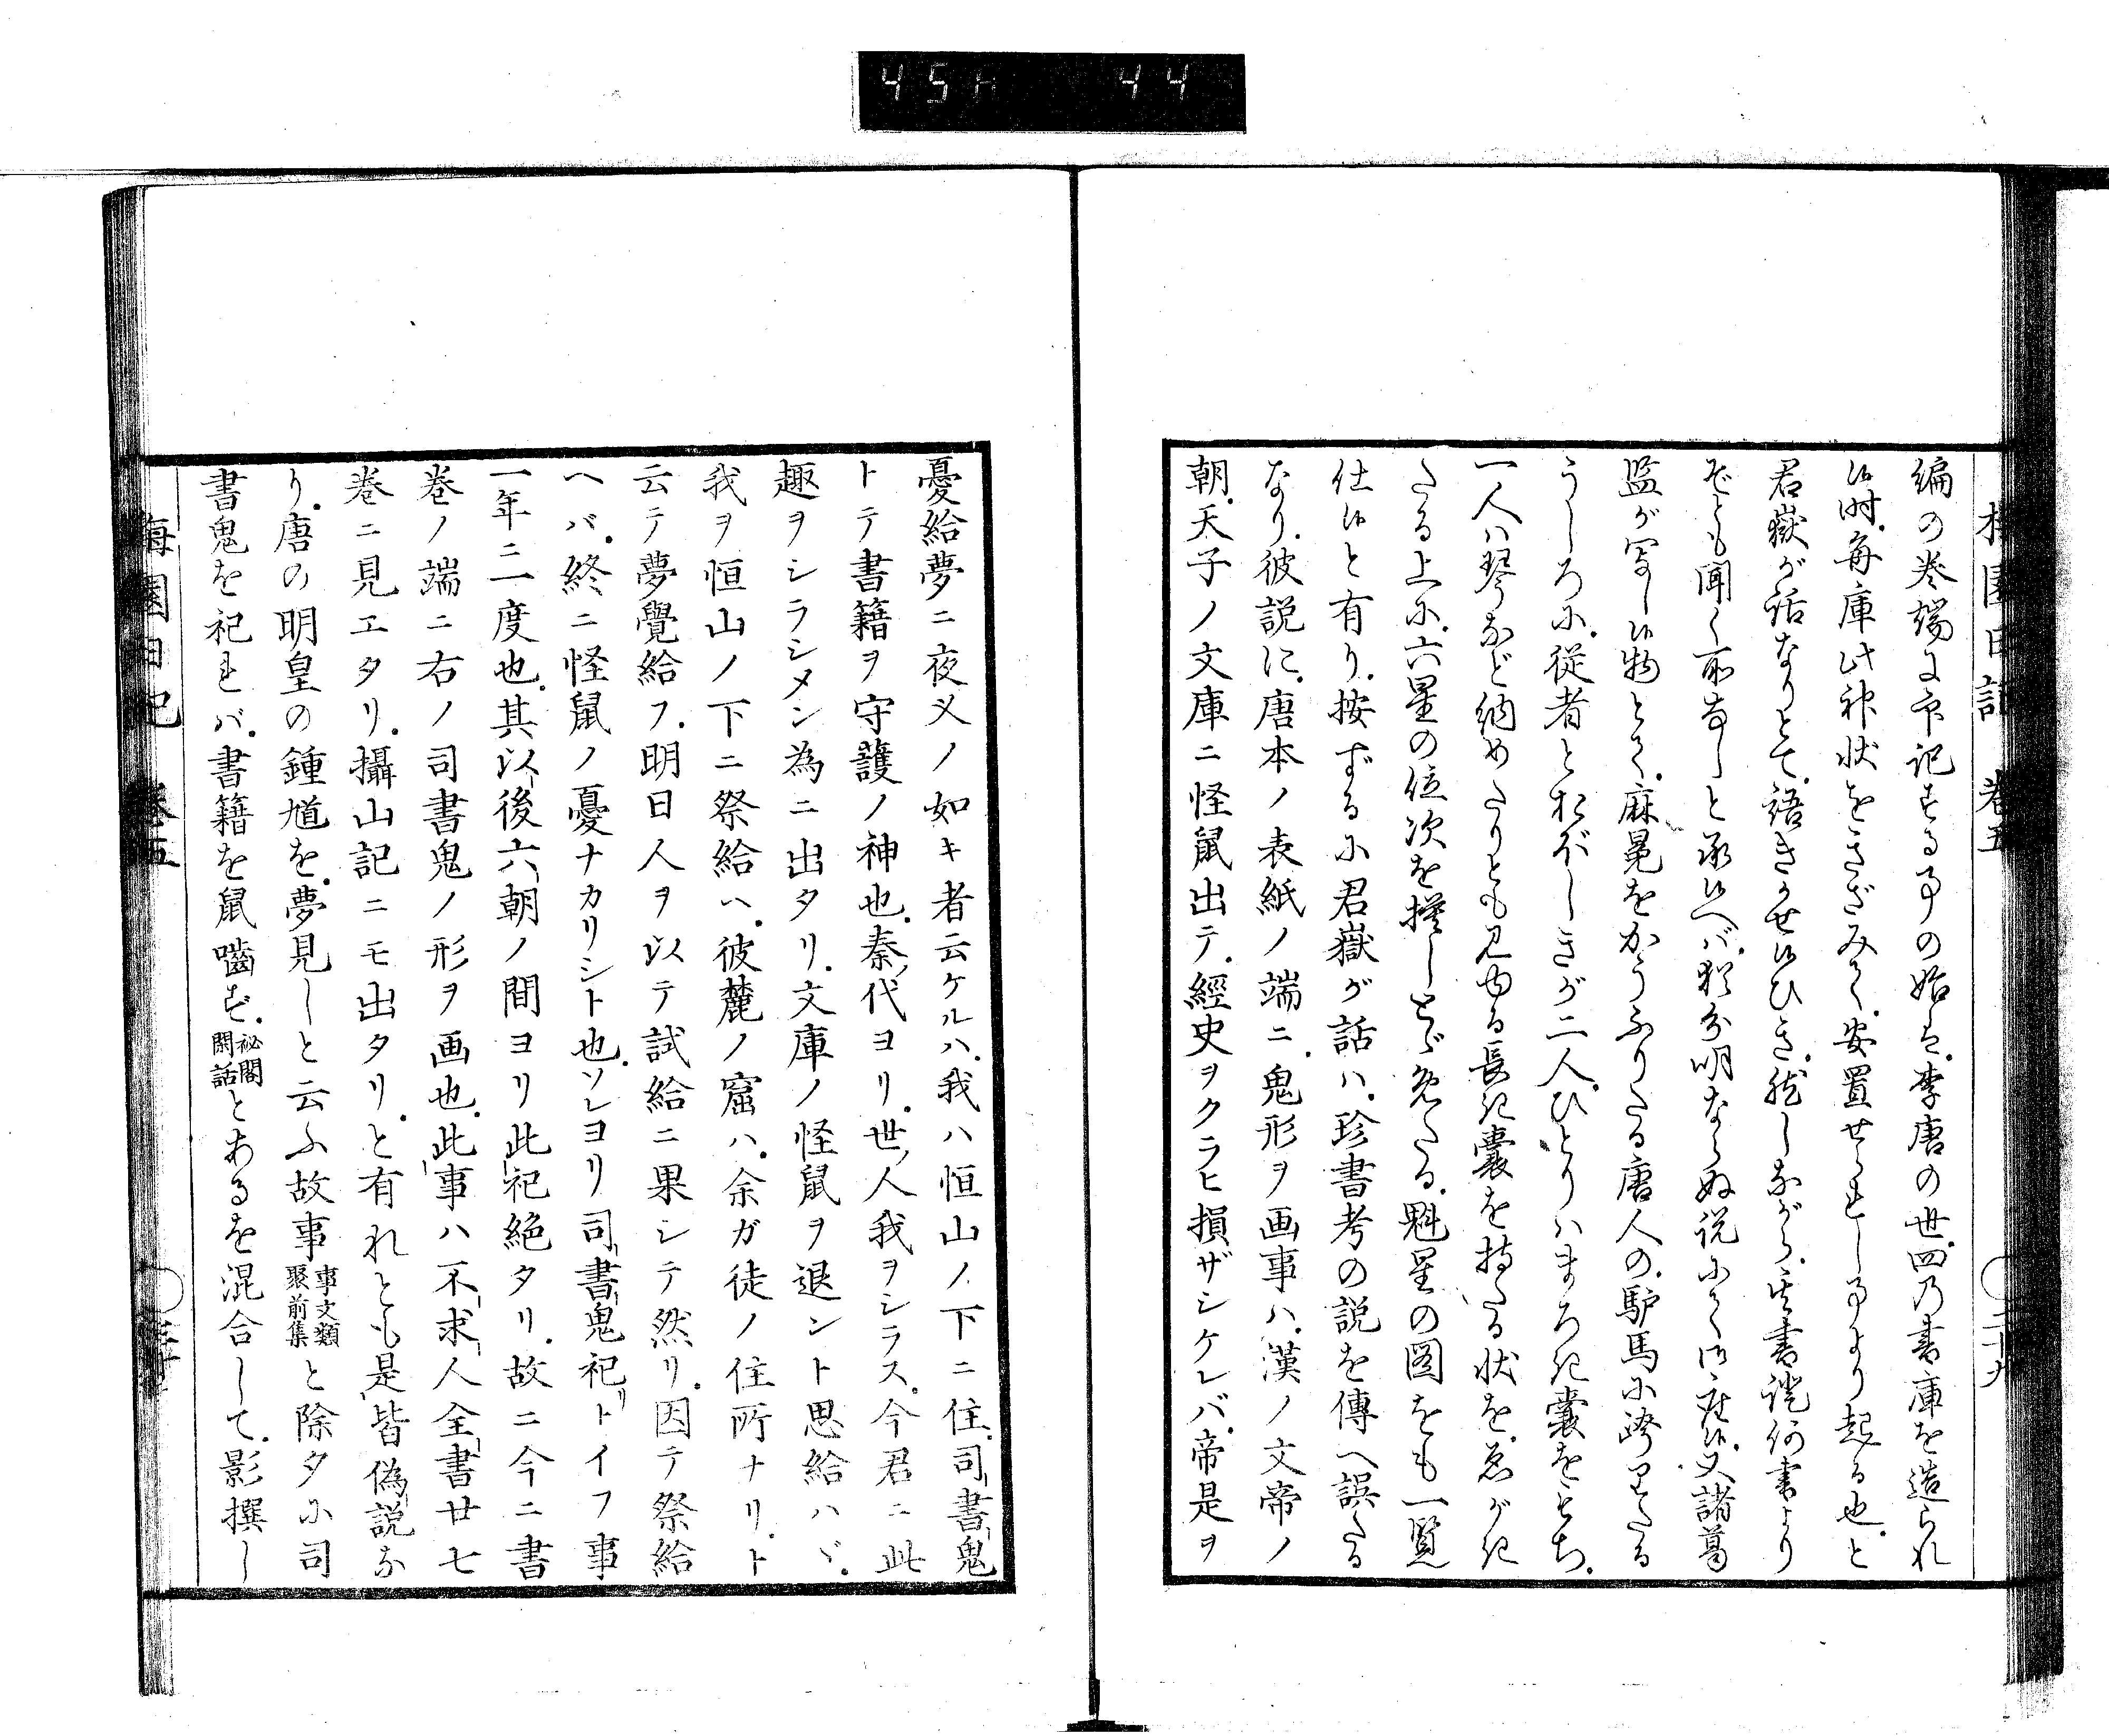 45h 44
梅園日記 卷五 ○二十九
編の巻端に印記する事の始は、李唐の世、四乃書庫を造られ
候時、毎庫此神状をきざみて、安置せられし事より起る也、と
君嶽が話なりとて、語きかせ候ひき、然しながら、此書證何書より
ぞとも聞く所なしと承候へバ、猶分明ならぬ説にて御座候、又諸葛
監が写し候物とて、麻冕をかうふりたる唐人の、驢馬に跨りたる
うしろに、従者とおぼしきが二人、ひとりハまろき嚢をもち、
一人ハ琴など納めたりとも見ゆる長き嚢を持たる状を、ゑがき
たる上に、六星の位次を摸しとゞめたる、魁星の図をも一覧
仕候と有り、按ずるに君嶽が話ハ、珍書考の説を傳へ誤たる
なり、彼説に、唐本ノ表紙ノ端ニ、鬼形ヲ画事ハ、漢ノ文帝ノ
朝、天子ノ文庫ニ怪鼠出テ、經史ヲクラヒ損ザシケレバ、帝是ヲ
憂給夢ニ夜叉ノ如キ者云ケルハ、我ハ恒山ノ下ニ住、司書鬼
トテ書籍ヲ守護ノ神也、秦ノ代ヨリ、世ノ人我ヲシラス、今君ニ此
趣ヲシラシメン為ニ出タリ、文庫ノ怪鼠ヲ退ント思給ハヾ、
我ヲ恒山ノ下ニ祭給ハ、彼麓ノ窟ハ、余ガ徒ノ住所ナリ、ト
云テ夢覺給フ、明日人ヲ以テ試給ニ果シテ然リ、因テ祭給
ヘバ、終ニ怪鼠ノ憂ナカリシト也、ソレヨリ司書鬼祀リトイフ事
一年ニ一度也、其以後六朝ノ間ヨリ此祀絶タリ、故ニ今ニ書
巻ノ端ニ右ノ司書鬼ノ形ヲ画也、此事ハ不求人全書廿七
巻ニ見エタリ、攝山記ニモ出タリ、と有れとも是皆偽説な
り、唐の明皇の鍾馗を、夢見しと云ふ故事事文類聚前集と除夕に司
書鬼を祀れバ、書籍を鼠囓ず、秘閣閑話とあるを混合して、影撰し
梅園日記 卷五